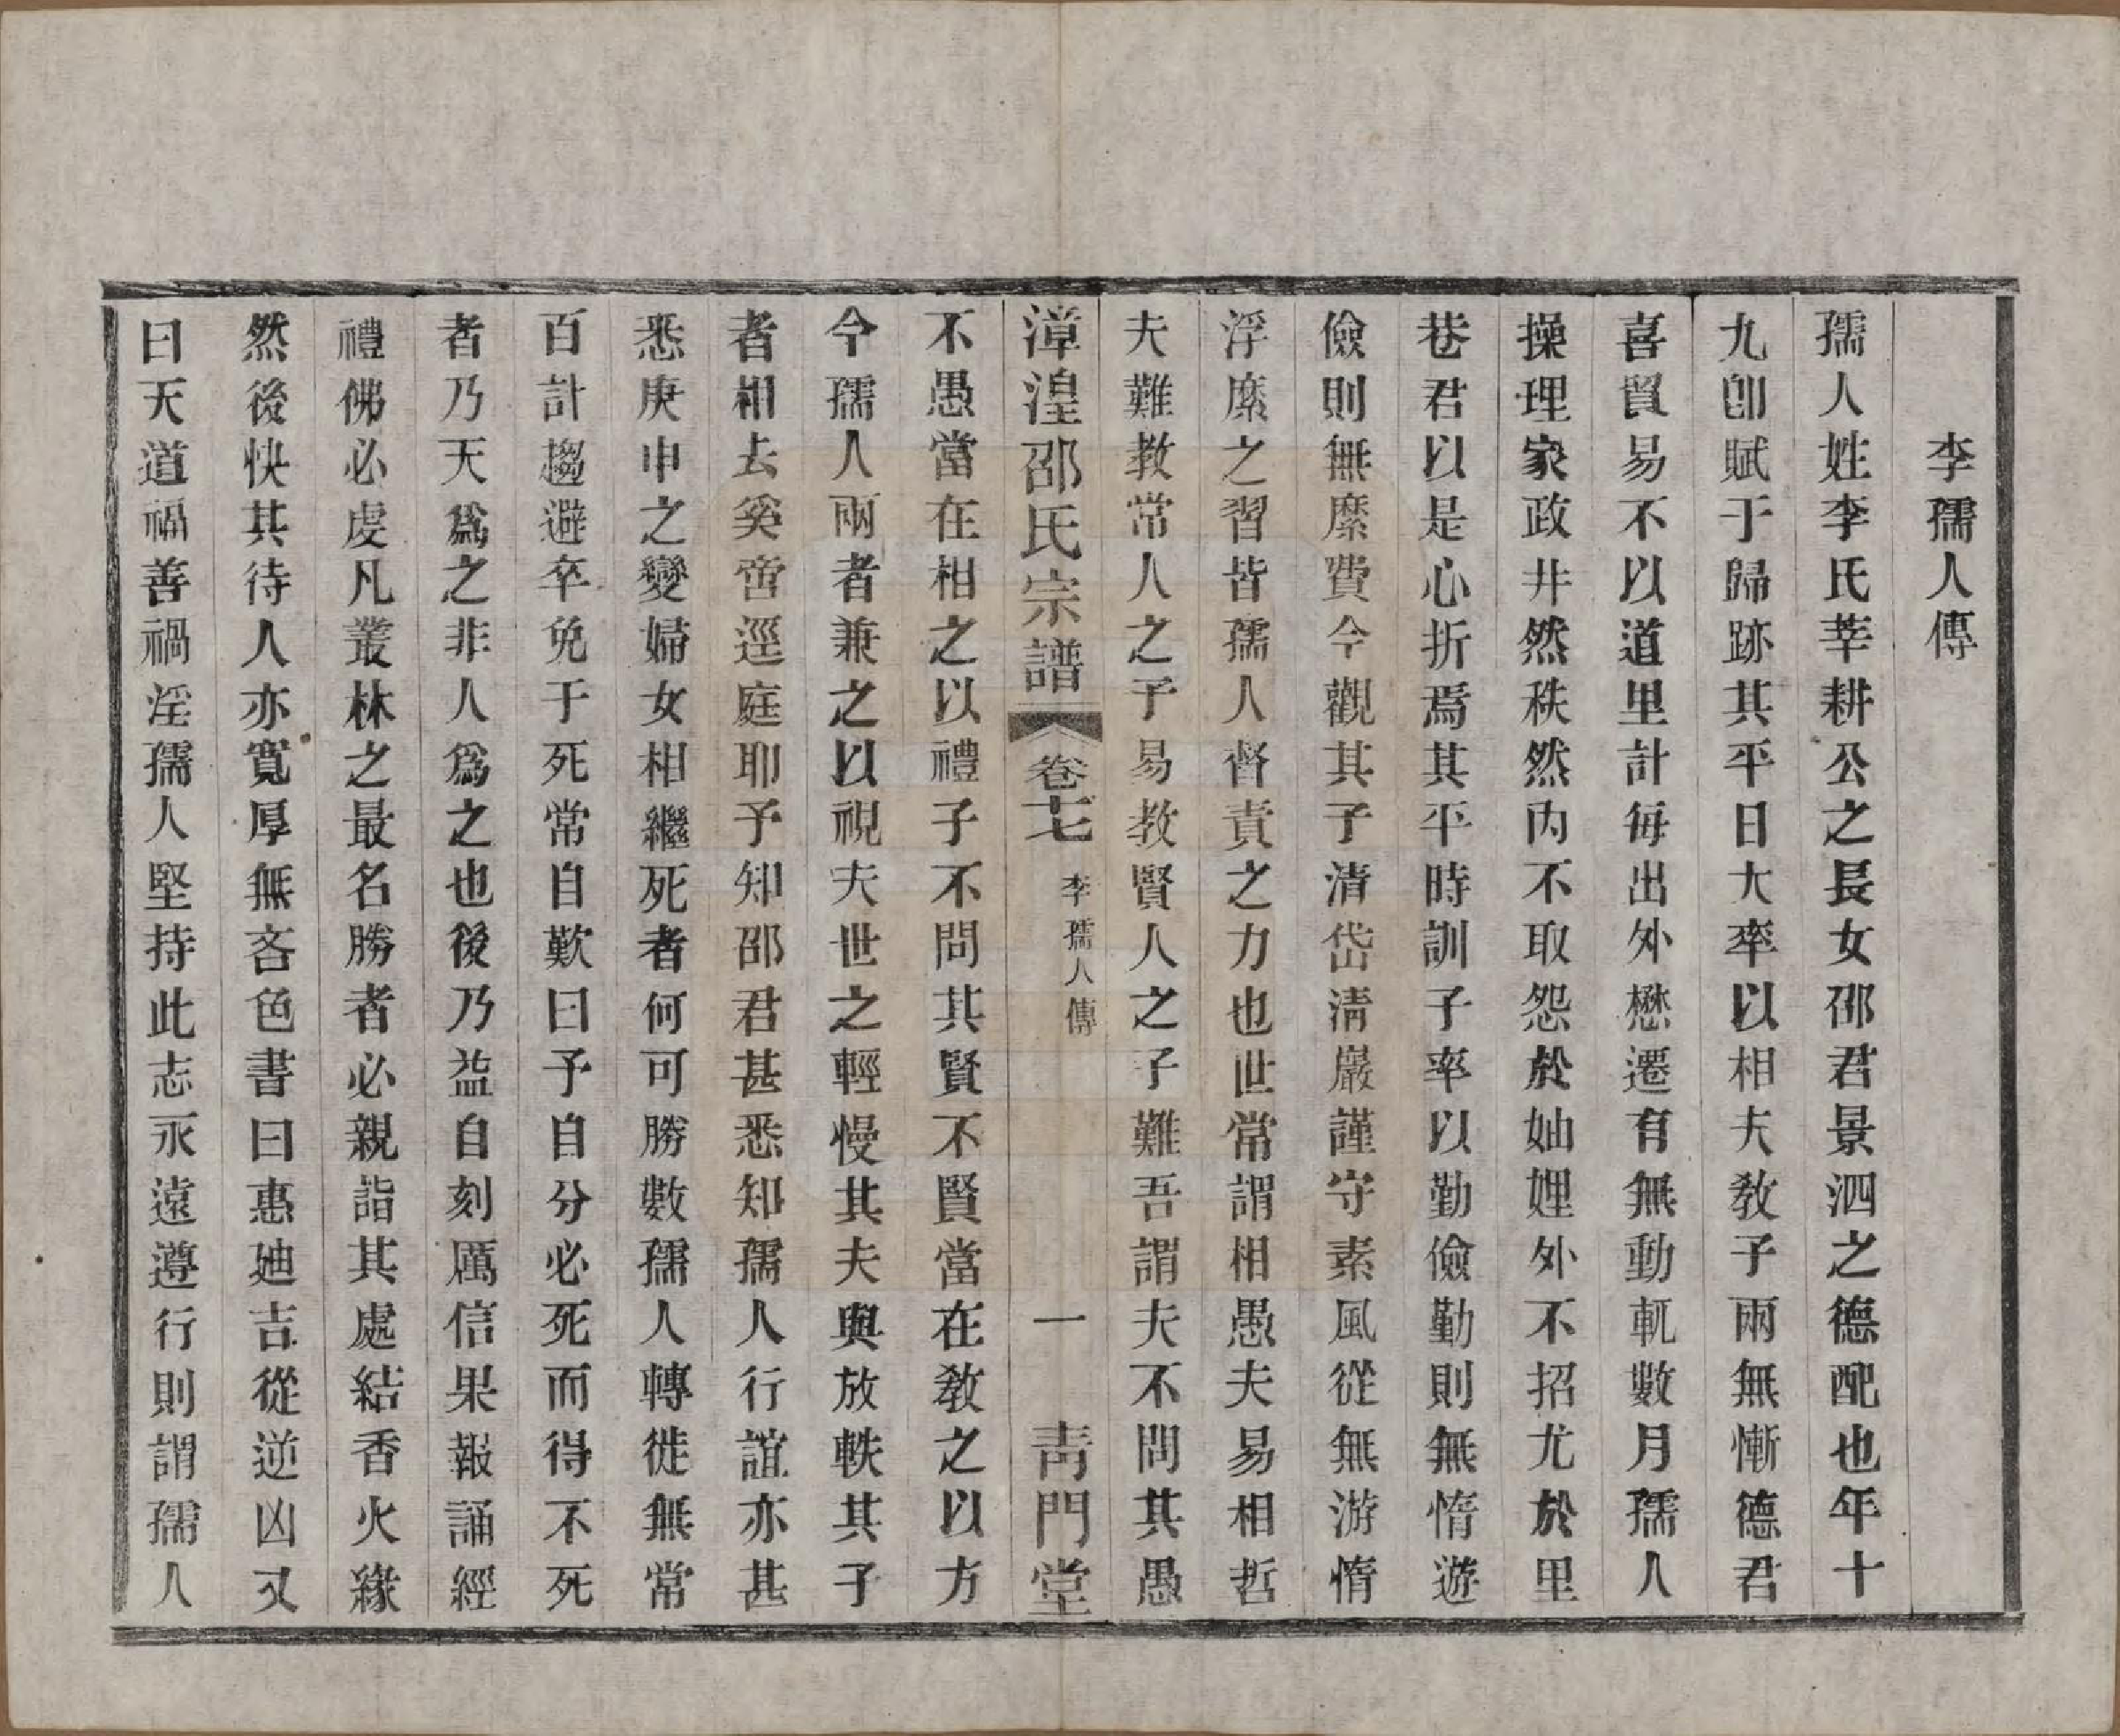 李孺人傳
孺人姓李氏莘耕公之長女邵君景泗之德配也年十
九卽賦于歸跡其平日大率以相夫敎子兩無慚德君
喜貿易不以道里計每出外懋遷有無動輒數月孺人
操理家政井然秩然內不取怨於妯娌外不招尤於里
巷君以是心折焉其平時訓子率以勤儉勤則無惰遊
儉則無縻費今觀其子清岱淸嚴謹守素風從無游惰
浮縻之習皆孺人督責之力也世常謂相愚夫易相哲
夫難敎常人之子易教賢人之子難吾謂夫不問其愚
漳湟邵氏宗譜
卷七
李孺人傳
一
靑門堂
不愚當在相之以禮子不問其賢不賢當在敎之以方
今孺人兩者兼之以視夫世之輕慢其夫與放軼其子
者相去奚啻逕庭耶予知邵君甚悉知孺人行誼亦甚
悉庚申之變婦女相繼死者何可勝數孺人轉徙無常
百計趨避卒免于死常自歎曰予自分必死而得不死
者乃天爲之非人爲之也後乃益自刻厲信果報誦經
禮佛必虔凡叢林之最名勝者必親詣其處結香火緣
然後快其待人亦寬厚無吝色書曰惠迪吉從逆凶又
曰天道福善禍淫孺人堅持此志永遠遵行則謂孺人